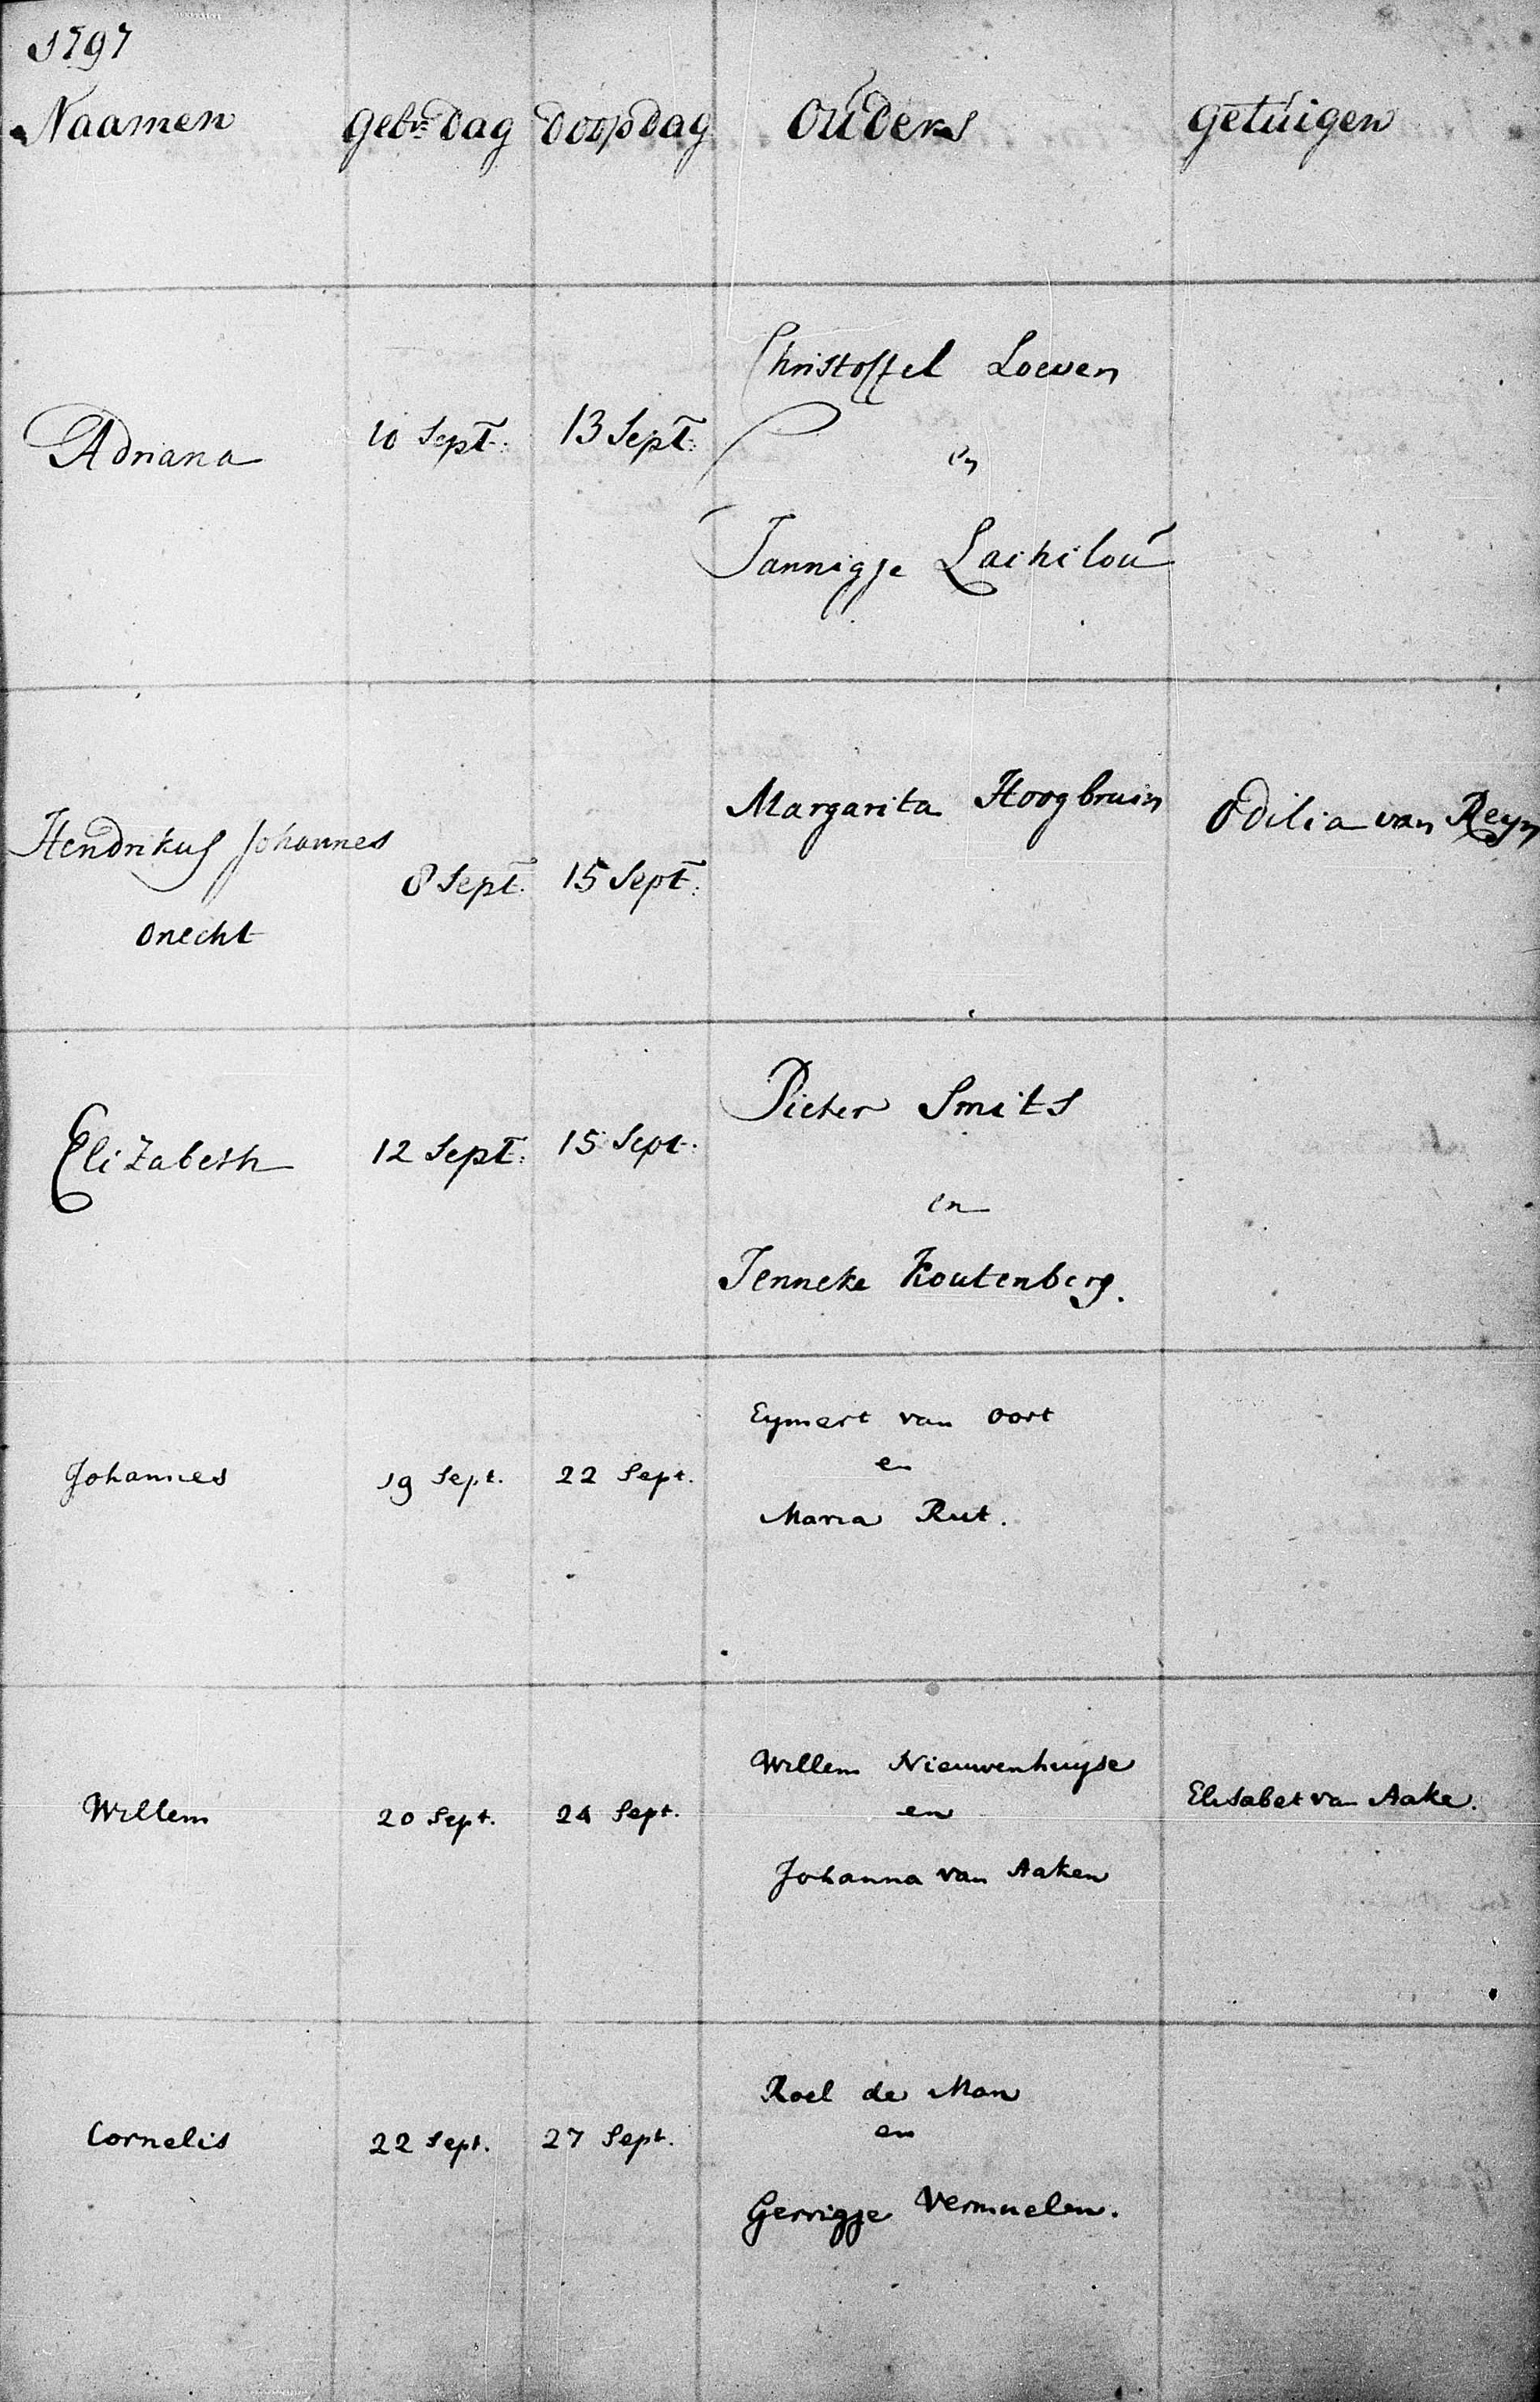 1797
Naamen Gebe Dag Doopdag Ouders Getuigen
Christoffel Loeven
Adriana 10 Sept: 13 Sept:
en
Jannigje Lachilou
Margarita Hoogbruin Odilia van Reyn
Hendrikus Johannes
8 Sept: 15 Sept:
onecht
Pieter Smits
Elizabeth 12 Sept: 15 Sept.
en
Jenneke Koutenberg.
Eymert van Oort
en
Johannes 19 Sept. 22 Sept.
Maria Rut.
Willem Nieuwenhuyse
Willem 20 Sept. 24 Sept. en Elisabet van Aake.
Johanna van Aaken
Roel de Man
en
Cornelis 22 Sept. 27 Sept.
Gerrigje Vermuelen.